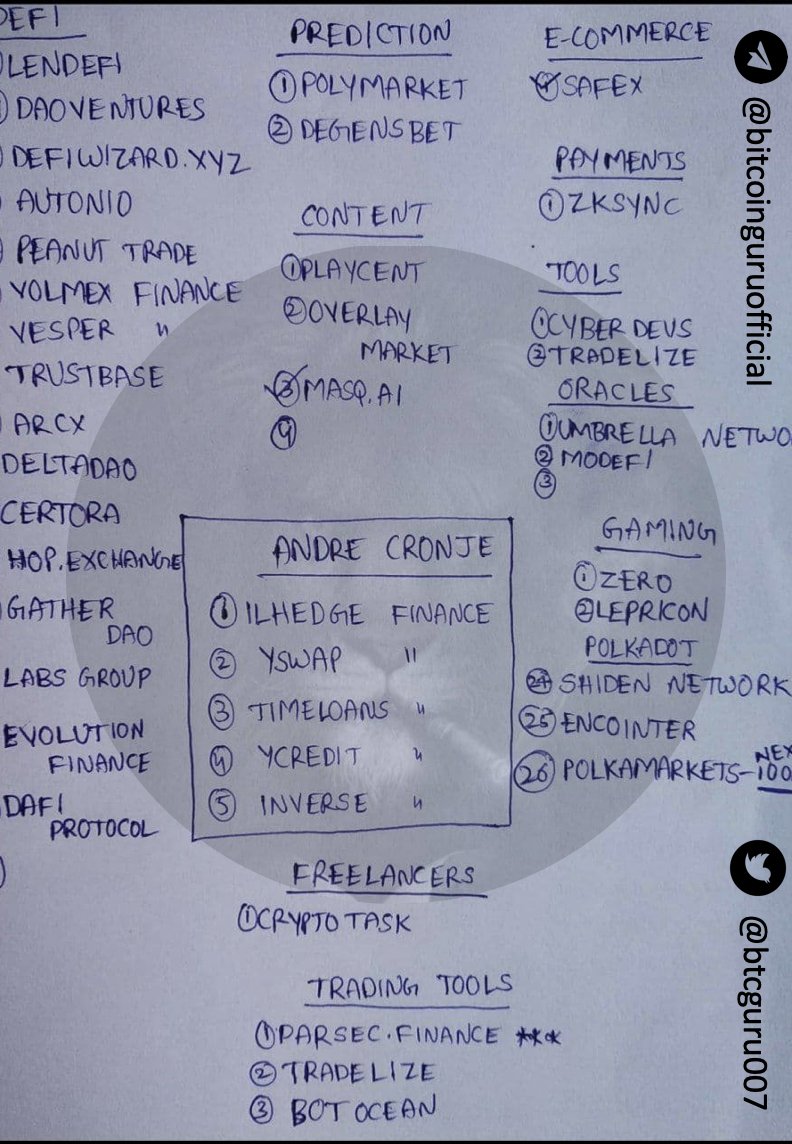 DEFI
LENDEFI
DAOVENTURES
DEFIWIZARD.XYZ
AUTONIO
PEANUT TRADE
VOLMEX FINANCE
VESPER "
TRUSTBASE
ARCX
DELTADAO
CERTORA
HOP.EXCHANGE
GATHER
DAO
LABS GROUP
EVOLUTION
FINANCE
DAFI
PROTOCOL
PREDICTION
① POLYMARKET
② DEGENSBET
CONTENT
① PLAYCENT
② OVERLAY
MARKET
③ MASQ.AI
④
ANDRE CRONJE
① ILHEDGE FINANCE
② YSWAP "
③ TIMELOANS "
④ YCREDIT "
⑤ INVERSE "
FREELANCERS
① CRYPTO TASK
TRADING TOOLS
① PARSEC.FINANCE ***
② TRADELIZE
③ BOT OCEAN
E-COMMERCE
SAFEX
PAYMENTS
① ZKSYNC
TOOLS
① CYBER DEVS
② TRADELIZE
ORACLES
① UMBRELLA NETWO
② MODEFI
③
GAMING
① ZERO
② LEPRICON
POLKADOT
㉔ SHIDEN NETWORK
㉕ ENCOINTER
㉖ POLKAMARKETS-NEX
100
@bitcoinguruofficial
@btcguru007